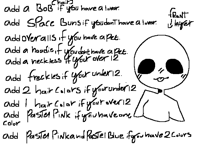 add a BOB if you have a lover
add SPACE Buns if you don't have a lover
add overalls if you have a Pet
add a hoodie if you don't have a Pet
add a necklace if your over 12
add freckles if your under 12
add 2 hair colors if your under 12
add 1 hair color if your over 12
add Pastel Pink if you have one
color
add Pastel Pink and Pastel Blue if you have 2 Colors